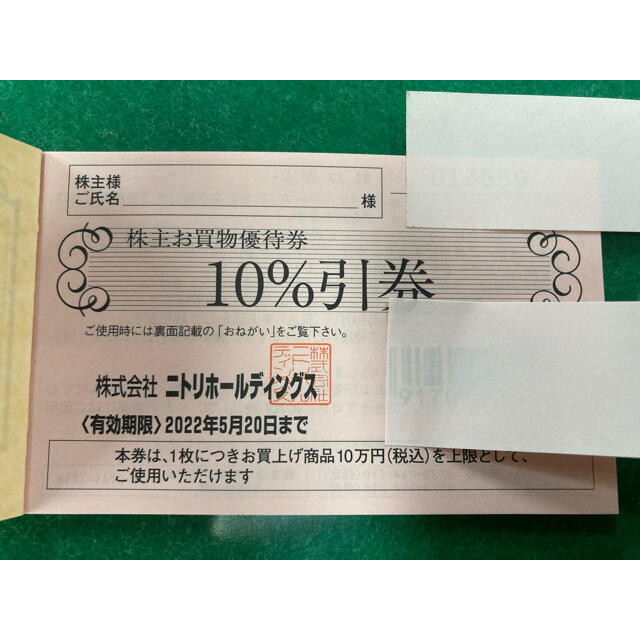 株主様
ご氏名 様
株主お買物優待券
10%引券
ご使用時には裏面記載の「おねがい」をご覧下さい。
株式会社 ニトリホールディングス
〈有効期限〉2022年5月20日まで
本券は、1枚につきお買上げ商品10万円(税込)を上限として、
ご使用いただけます